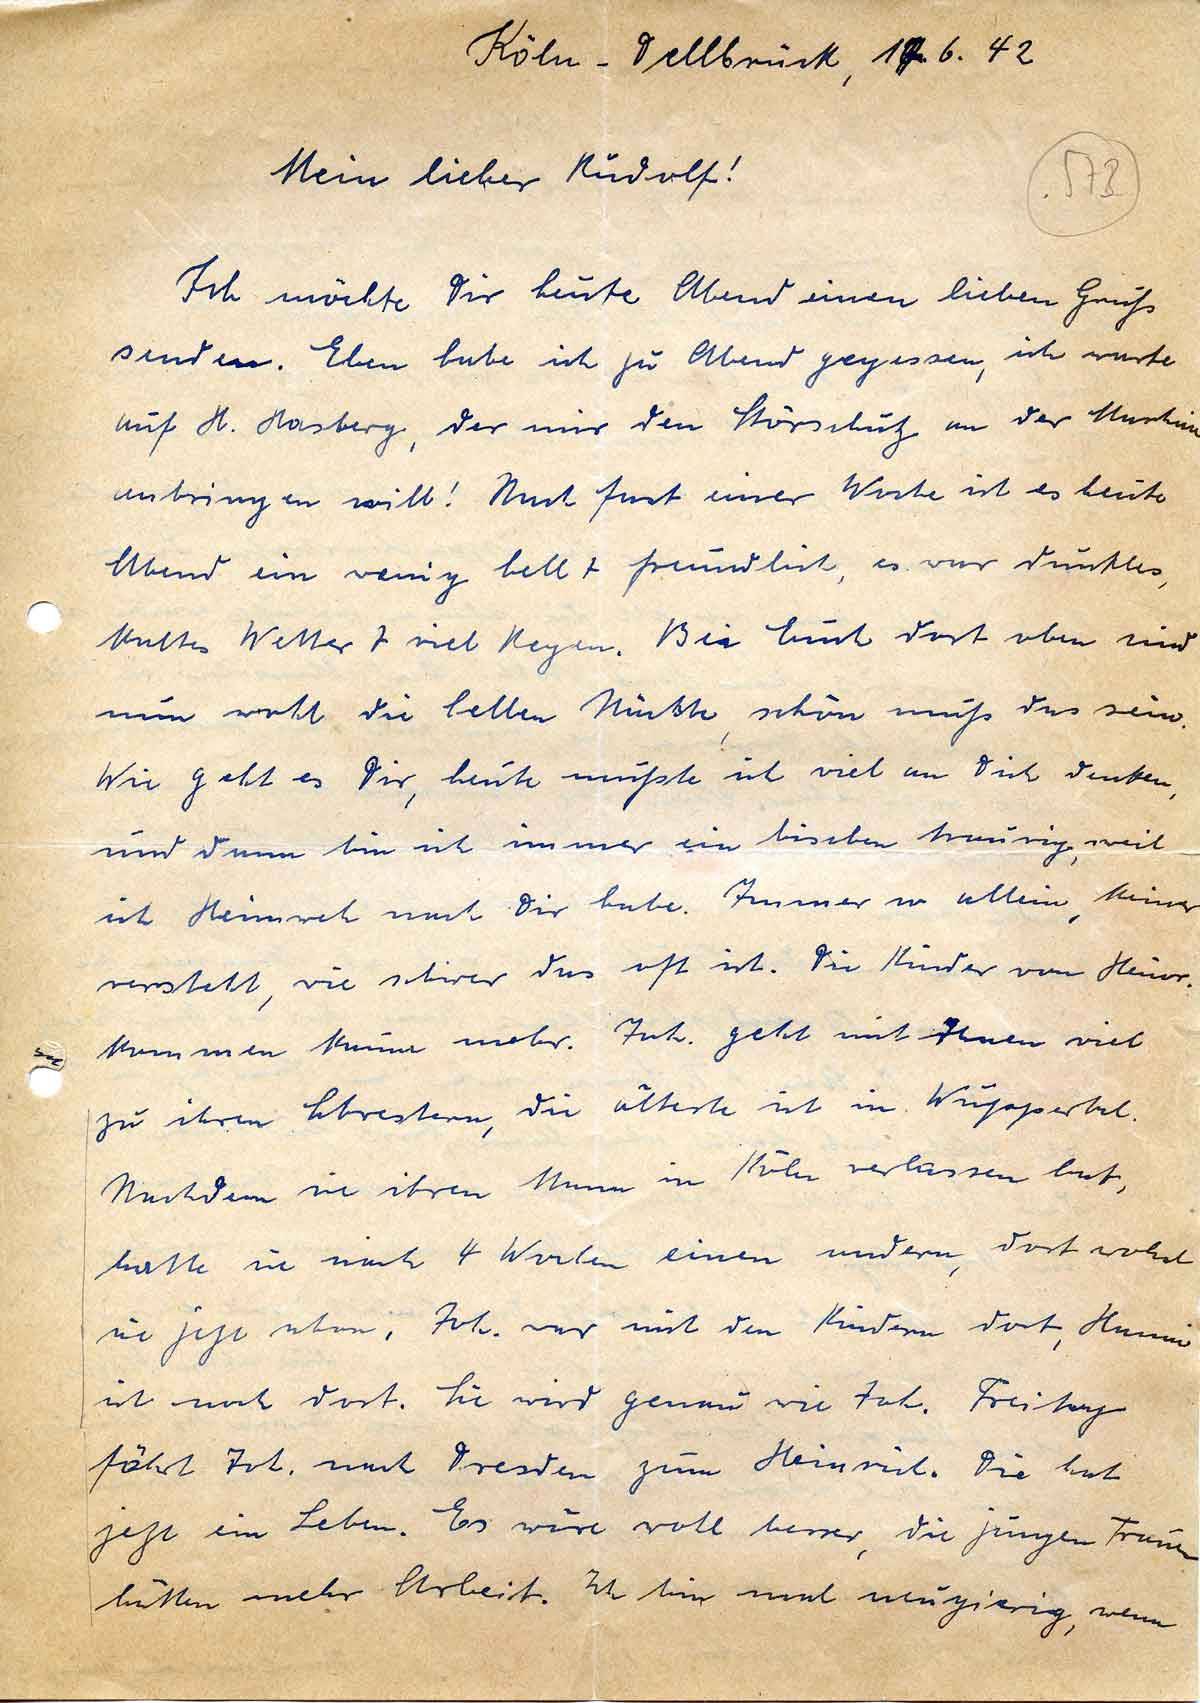 Köln-Dellbrück, 17.6.42
573
Mein lieber Rudolf!
Ich möchte Dir heute Abend einen lieben Gruß
senden. Eben habe ich zu Abend gegessen, ich warte
auf H. Hasberg, der mir den Störschutz an der Maschine
anbringen will! Nach fast einer Woche ist es heute
Abend ein wenig hell + freundlich, es war dunkles,
kaltes Wetter + viel Regen. Bei Euch dort oben sind
nun wohl die hellen Nächte, schön muß das sein.
Wie geht es Dir, heute mußte ich viel an Dich denken,
und dann bin ich immer ein bischen traurig, weil
ich Heimweh nach Dir habe. Immer so allein, keiner
versteht, wie schwer das oft ist. Die Kinder von Heinr.
kommen kaum mehr. Joh. geht mit Ihnen viel
zu ihren Schwestern, die älteste ist in Wuppertal.
Nachdem sie ihren Mann in Köln verlassen hat,
hatte sie nach 4 Wochen einen andern, dort wohnt
sie jetzt schon. Joh. war mit den Kindern dort, Hanni
ist noch dort. Sie wird genau wie Joh. Freitag
fährt Joh. nach Dresden zum Heinrich. Die hat
jetzt ein Leben. Es wäre woll besser, die jungen Frauen
hätten mehr Arbeit. Ich bin mal neugierig, wenn